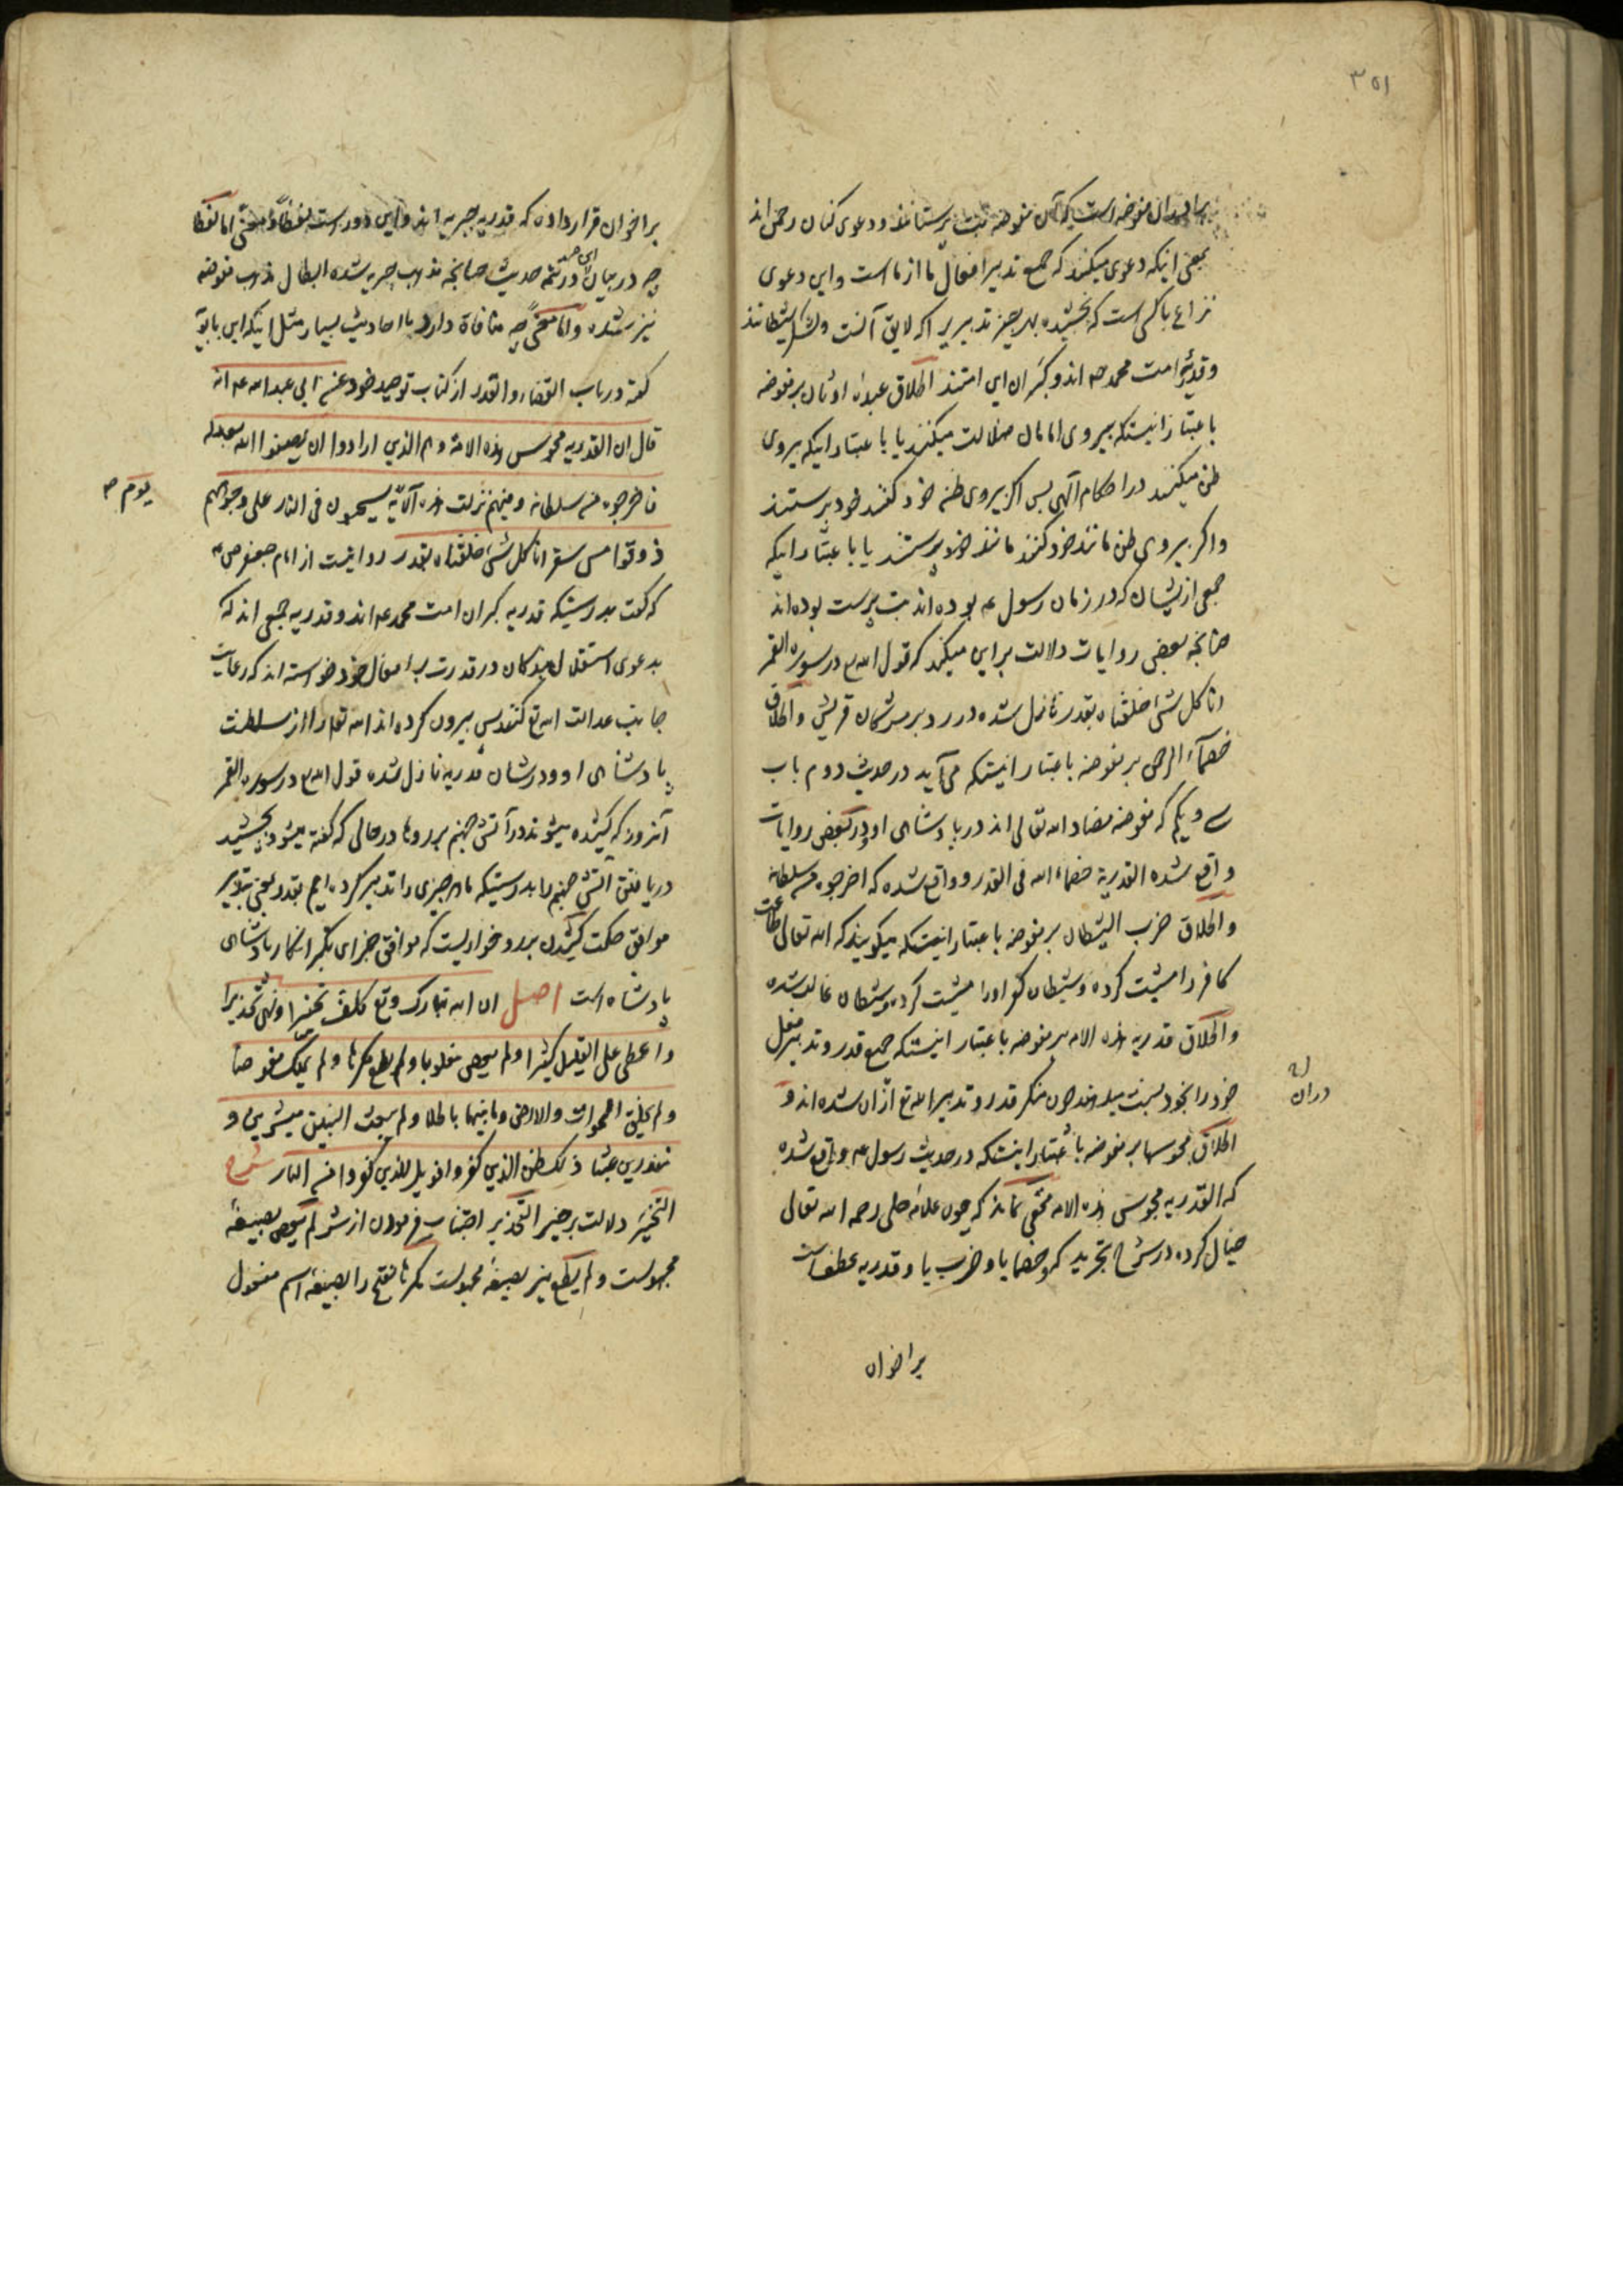 ۳۵۱
برادران مفوضه است که آن مفوضه بت پرستانند و دعوی کنان رحمن اند
بمعنی اینکه دعوی میکنند که جمیع تدبیر افعال ما از ماست و این دعوی
نزاع با کسی است که بخشیده بهر چیز تدبیریرا که لایق آنست و لشکر شیطانند
و قدریه امت محمد ص اند و گبران این امتند اطلاق عبدة اوثان بر مفوضه
باعتبار اینستکه پیروی امامان ضلالت میکنند یا باعتبار اینکه پیروی
ظن میکنند در احکام الهی پس اگر پیروی ظن خود کنند خود پرستند
و اگر پیروی ظن مانند خود کنند مانند خود پرستند یا باعتبار اینکه
جمعی از یشان که در زمان رسول ع بوده اند بت پرست بوده اند
چنانچه بعضی روایات دلالت بر این میکند که قول الله تع در سوره القمر
انا کل شئ خلقناه بقدر نازل شده در رد بر مشرکان قریش و اطلاق
خصمآء الرحمن بر مفوضه باعتبار اینستکه می آید در حدیث دوم باب
سی و یکم که مفوضه مضاد الله تعالی اند در پادشاهی او و در بعضی روایات
واقع شده القدریة خصماء الله فی القدر و واقع شده که اخرجوه من سلطانه
و اطلاق حزب الشیطان بر مفوضه باعتبار اینستکه میگویند که الله تعالی طاعت
کافر را مشیت کرده و شیطان کفر او را مشیت کرده و شیطان غالب شده
و اطلاق قدریه هذه الامه بر مفوضه باعتبار اینستکه جمیع قدر و تدبیر فعل
خود را بخود نسبت میدهند چون منکر قدر و تدبیر الله تع ازان شده اند و
دران
اطلاق مجوسها بر مفوضه باعتبار اینستکه در حدیث رسول ع واقع شده
که القدریه مجوس هذه الامه مخفی نماند که چون علامه حلی رحمه الله تعالی
خیال کرده در شرح تجرید که و خصما یا و حزب یا و قدریه عطفست
بر اخوان
بر اخوان قرار داده که قدریه جبریه اند و این دور است لفظاً و معنی اما لفظا
چه در میان این حدیث در تتمه حدیث چنانچه مذهب جبریه شده ابطال مذهب مفوضه
نیز شده و اما معنیً چه منافاة دارد با احادیث بسیار مثل اینکه ابن بابویه
گفته در باب القضاء و القدر از کتاب توحید خود عن ابی عبد الله ع انه
قال ان القدریه مجوس هذه الامة و هم الذین ارادوا ان یصفوا الله بعدله
فاخرجوه من سلطانه و فیهم نزلت هذه الآیة یسحبون فی النار علی وجوههم
یوم ص
ذوقوا مس سقر انا کل شئ خلقناه بقدر روایتست از امام جعفر ص ع
که گفت بدرستیکه قدریه گبران امت محمد ع اند و قدریه جمعی اند که
بدعوی استقلال بندگان در قدرت بر افعال خود خواسته اند که رعایت
جانب عدالت الله تع کنند پس بیرون کرده اند الله تعا را از سلطنت
پادشاهی او و در شان قدریه نازل شده قول الله تع در سوره القمر
آنروز که کشیده میشوند در آتش جهنم بر روها در حالی که گفته میشود بچشید
دریافتن آتش جهنم را بدرستیکه ما هر چیزی را تدبیر کرده ایم بقدر یعنی بتدبیر
موافق حکمت کشیدن بر رو خواریست که موافق جزای تکبر انکار پادشاهی
پادشاه است اصل ان الله تبارک و تع کلف تخییرا و نهی تحذیرا
و اعطی علی القلیل کثیرا و لم یعص مغلوبا و لم یطع مکرها و لم یملک مفوضا
و لم یخلق السموات و الارض و ما بینهما باطلا و لم یبعث النبیین مبشرین و
منذرین عبثا ذلک ظن الذین کفروا فویل للذین کفروا من النار شرح
التخییر دلالت بر خیر التحذیر اجتناب فرمودن از شر لم یعص بصیغهٔ
مجهولست و لم یطع نیز بصیغهٔ مجهولست مکرها بفتح را بصیغهٔ اسم مفعول